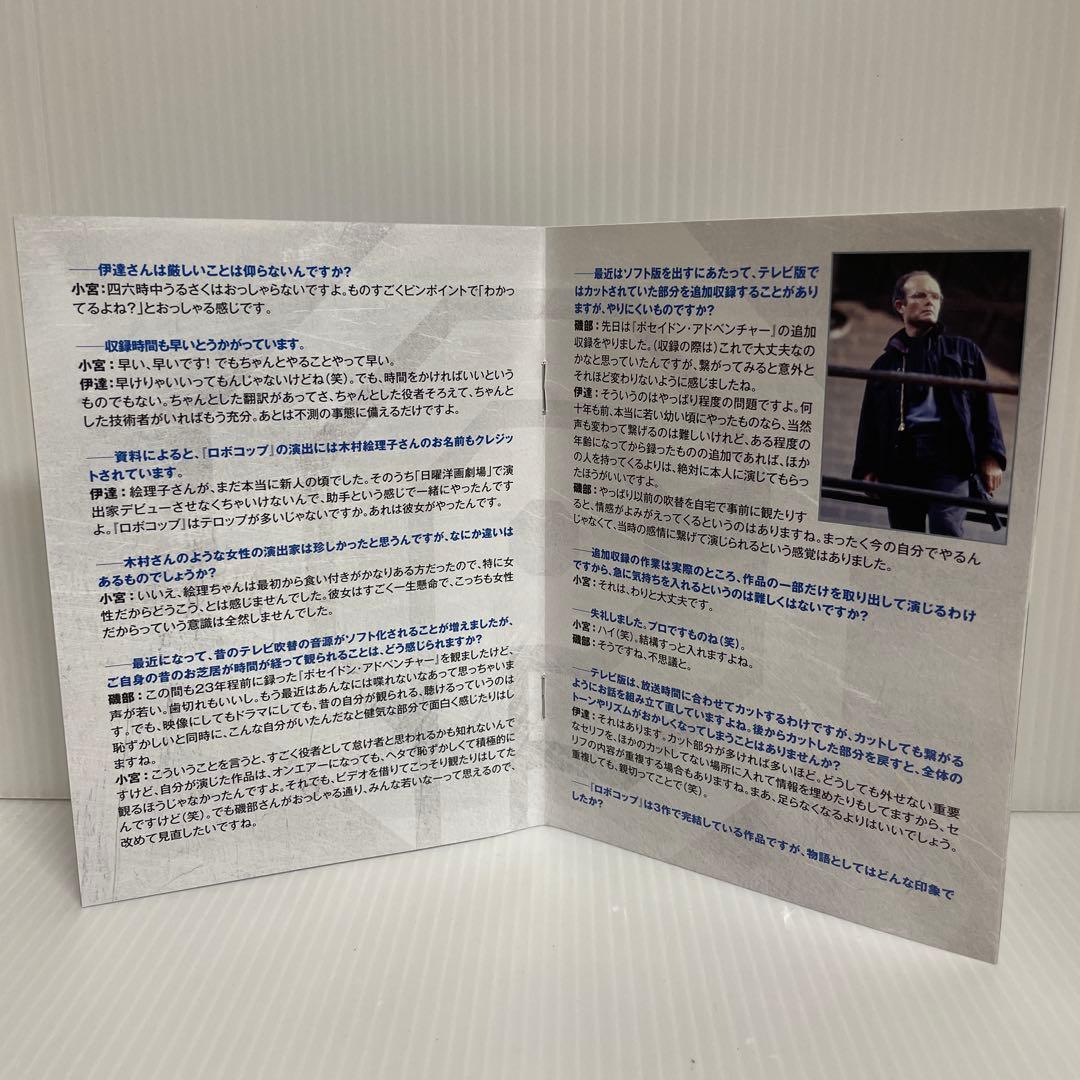 ──伊達さんは厳しいことは仰らないんですか?
小宮：四六時中うるさくはおっしゃらないですよ。ものすごくピンポイントで「わかっ
てるよね?」とおっしゃる感じです。
──収録時間も早いとうかがっています。
小宮：早い、早いです! でもちゃんとやることやって早い。
伊達：早けりゃいいってもんじゃないけどね(笑)。でも、時間をかければいいという
ものでもない。ちゃんとした翻訳があってさ、ちゃんとした役者そろえて、ちゃんと
した技術者がいればもう充分。あとは不測の事態に備えるだけですよ。
──資料によると、『ロボコップ』の演出には木村絵理子さんのお名前もクレジッ
トされています。
伊達：絵理子さんが、まだ本当に新人の頃でした。そのうち「日曜洋画劇場」で演
出家デビューさせなくちゃいけないんで、助手という感じで一緒にやったんです
よ。『ロボコップ』はテロップが多いじゃないですか。あれは彼女がやったんです。
──木村さんのような女性の演出家は珍しかったと思うんですが、なにか違いは
あるものでしょうか?
小宮：いいえ、絵理ちゃんは最初から食い付きがかなりある方だったので、特に女
性だからどうこう、とは感じませんでした。彼女はすごく一生懸命で、こっちも女性
だからっていう意識は全然しませんでした。
──最近になって、昔のテレビ吹替の音源がソフト化されることが増えましたが、
ご自身の昔のお芝居が時間が経って観られることは、どう感じられますか?
磯部：この間も23年程前に録った『ポセイドン・アドベンチャー』を観ましたけど、
声が若い。歯切れもいいし。もう最近はあんなには喋れないなあって思っちゃいま
す。でも、映像にしてもドラマにしても、昔の自分が観られる、聴けるっていうのは
恥ずかしいと同時に、こんな自分がいたんだなと健気な部分で面白く感じたりはし
ますね。
小宮：こういうことを言うと、すごく役者として怠け者と思われるかも知れないんで
すけど、自分が演じた作品は、オンエアーになっても、ヘタで恥ずかしくて積極的に
観るほうじゃなかったんですよ。それでも、ビデオを借りてこっそり観たりはしてた
んですけど(笑)。でも磯部さんがおっしゃる通り、みんな若いなーって思えるので、
改めて見直したいですね。
──最近はソフト版を出すにあたって、テレビ版で
はカットされていた部分を追加収録することがあり
ますが、やりにくいものですか?
磯部：先日は『ポセイドン・アドベンチャー』の追加
収録をやりました。(収録の際は)これで大丈夫なの
かなと思っていたんですが、繋がってみると意外と
それほど変わりないように感じましたね。
伊達：そういうのはやっぱり程度の問題ですよ。何
十年も前、本当に若い幼い頃にやったものなら、当然
声も変わって繋げるのは難しいけれど、ある程度の
年齢になってから録ったものの追加であれば、ほか
の人を持ってくるよりは、絶対に本人に演じてもらっ
たほうがいいですよ。
磯部：やっぱり以前の吹替を自宅で事前に観たりす
ると、情感がよみがえってくるというのはありますね。まったく今の自分でやるん
じゃなくて、当時の感情に繋げて演じられるという感覚はありました。
──追加収録の作業は実際のところ、作品の一部だけを取り出して演じるわけ
ですから、急に気持ちを入れるというのは難しくはないですか?
小宮：それは、わりと大丈夫です。
──失礼しました。プロですものね(笑)。
小宮：ハイ(笑)。結構すっと入れますよね。
磯部：そうですね、不思議と。
──テレビ版は、放送時間に合わせてカットするわけですが、カットしても繋がる
ようにお話を組み立て直していますよね。後からカットした部分を戻すと、全体の
トーンやリズムがおかしくなってしまうことはありませんか?
伊達：それはあります。カット部分が多ければ多いほど。どうしても外せない重要
なセリフを、ほかのカットしてない場所に入れて情報を埋めたりもしてますから、セ
リフの内容が重複する場合もありますね。まあ、足らなくなるよりはいいでしょう。
重複しても、親切ってことで(笑)。
──『ロボコップ』は3作で完結している作品ですが、物語としてはどんな印象で
したか?